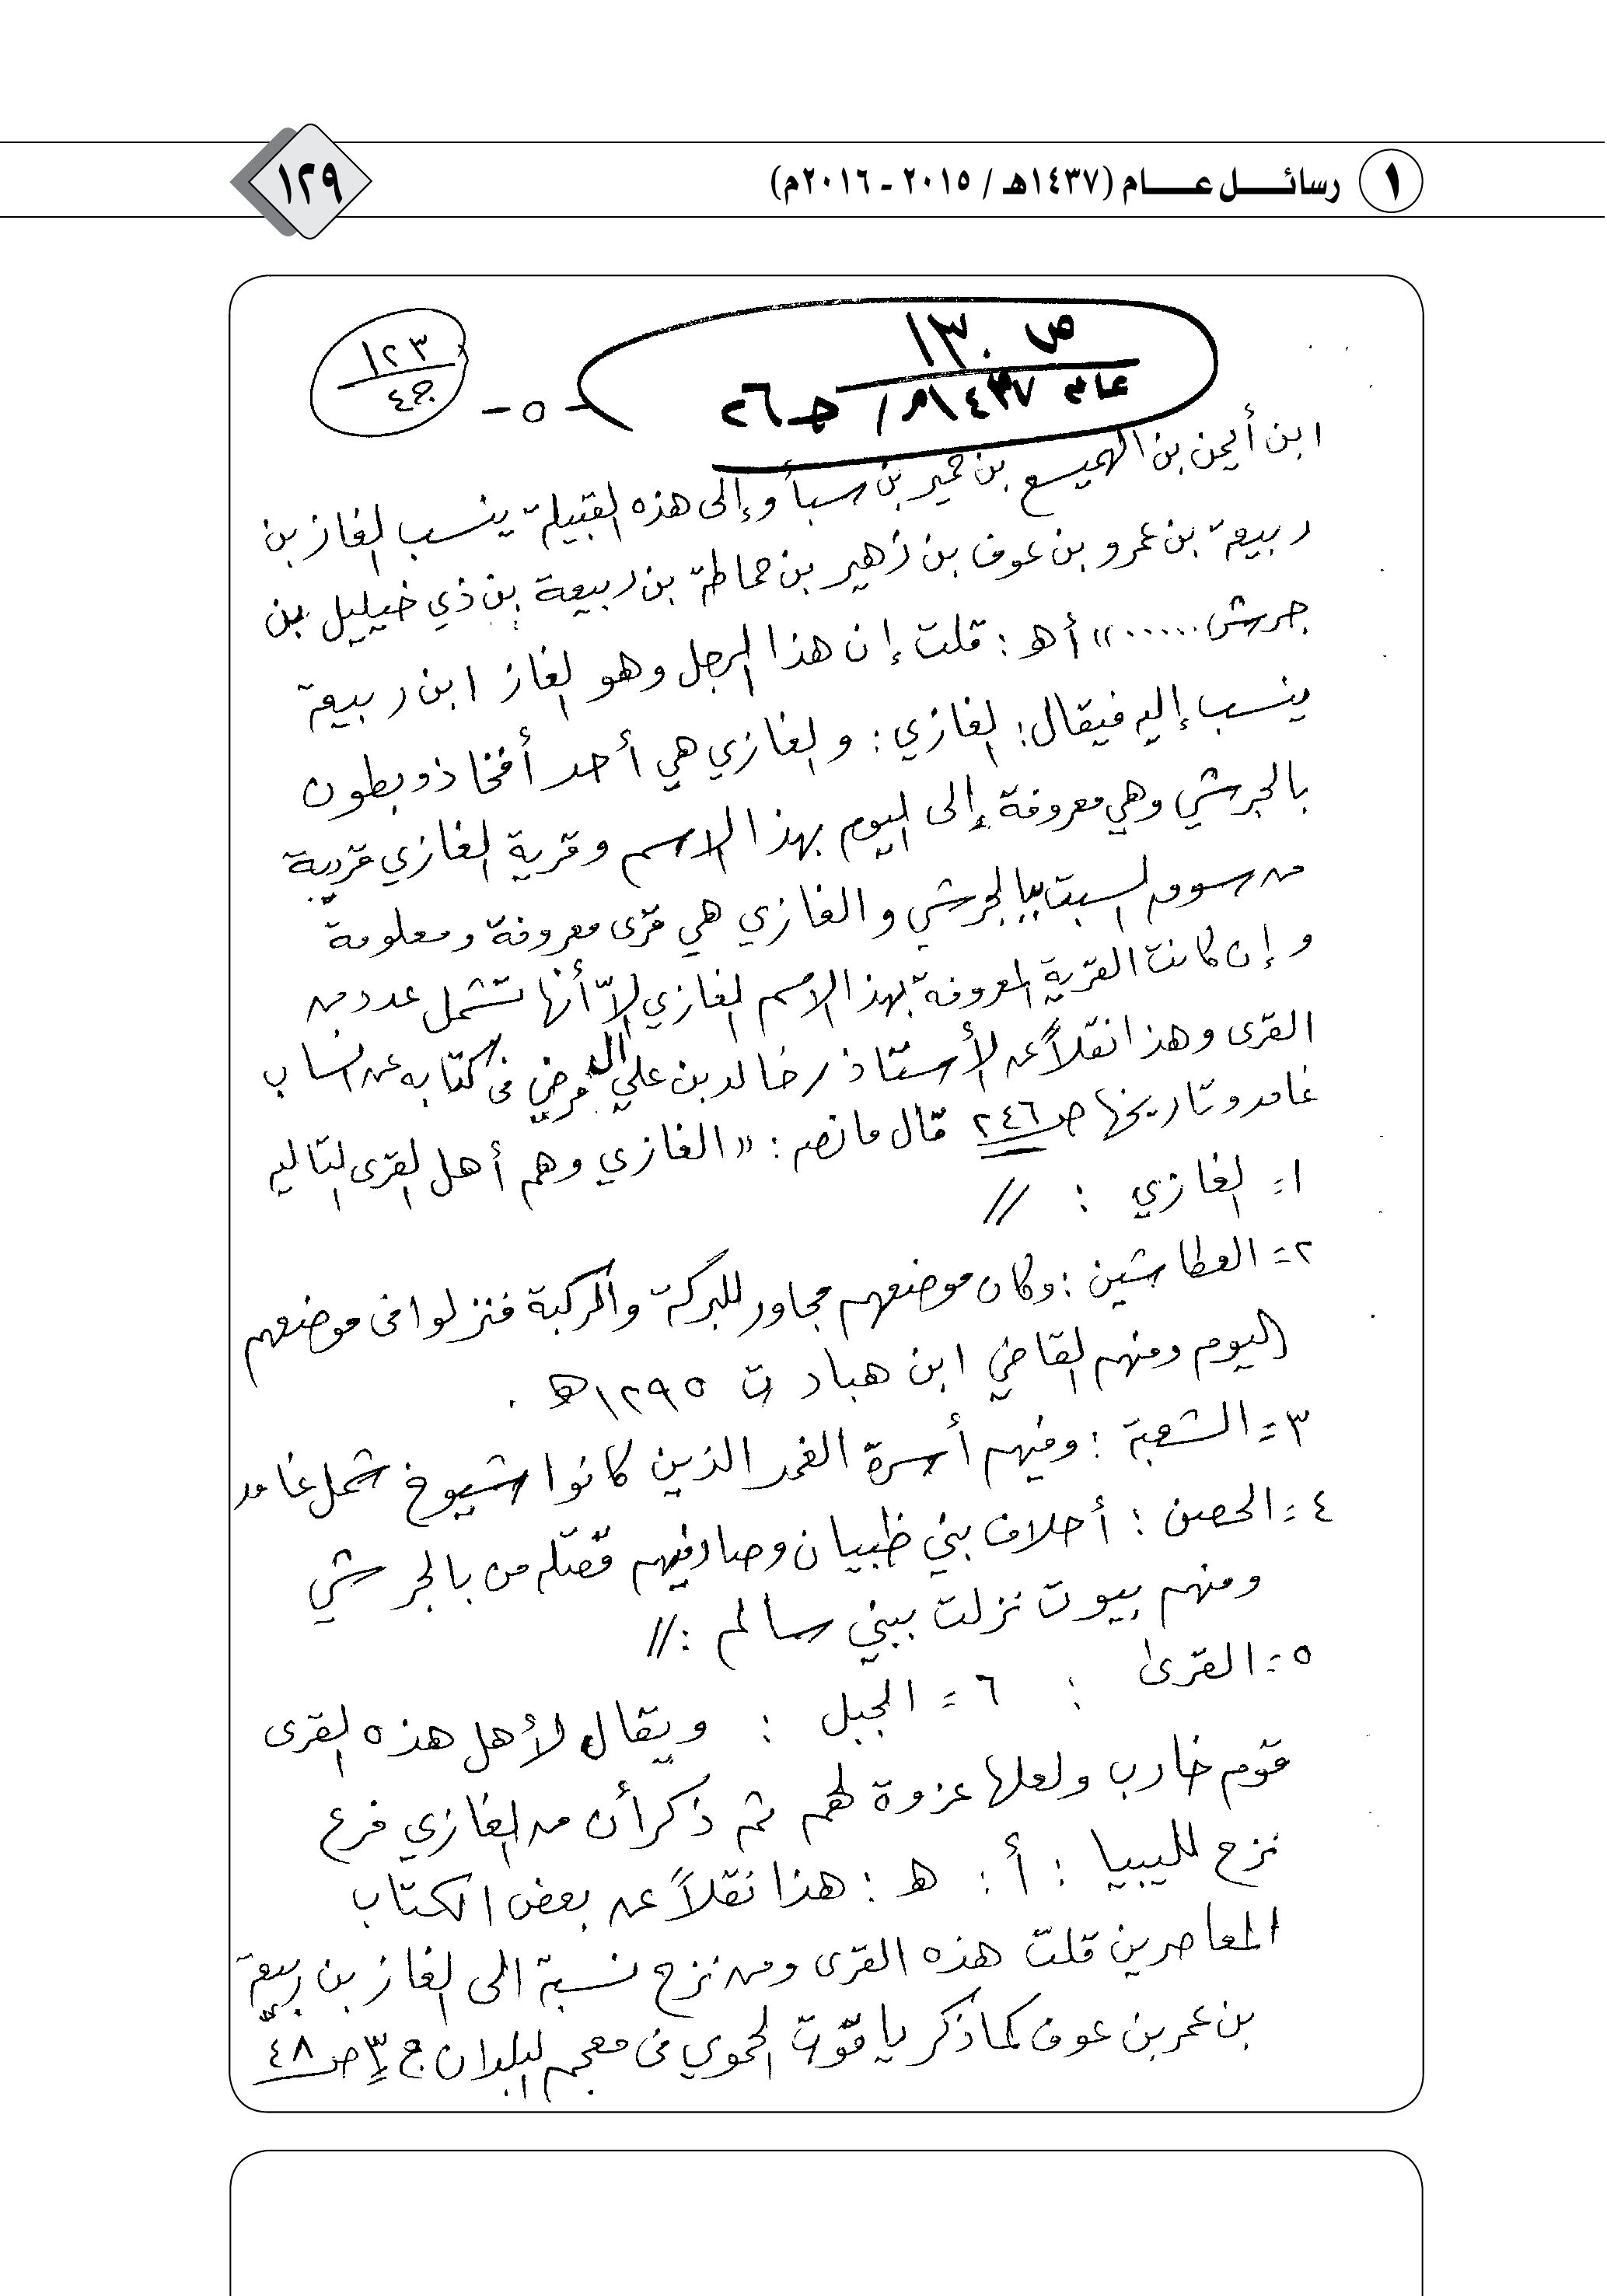 ١ رسائل عام (١٤٣٧هـ / ٢٠١٥ - ٢٠١٦م)
١٢٩
ص ١٣٠
عام ١٤٣٧هـ / جـ ٢٦
- ٥ -
١٢٣
جـ ٤
ابن أيمن بن الهميسع بن حمير بن سبأ وإلى هذه القبيلة ينسب الغاز بن
ربيعة بن عمرو بن عوف بن زهير بن حماطة بن ربيعة بن ذي خيليل بن
جرش ......» أهـ : قلت إن هذا الرجل وهو الغاز ابن ربيعة
ينسب إليه فيقال: الغازي : والغازي هي أحد أفخاذ وبطون
بالجرشي وهي معروفة إلى اليوم بهذا الاسم وقرية الغازي قريبة
من سوق السبت ببالجرشي والغازي هي قرى معروفة ومعلومة
وإن كانت القرية المعروفة بهذا الاسم الغازي إلاّ أنها تشمل عدد من
القرى وهذا نقلاً عن الأستاذ / خالد بن علي في كتابه عن انساب
غامد وتاريخها ص ٢٤٦ قال مانصه : « الغازي وهم أهل القرى التاليه
١= الغازي : //
٢= العطاشين : وكان موضعهم مجاور للبركة والركبة فنزلوا في موضعهم
اليوم ومنهم القاضي ابن هباد ت ١٢٩٥هـ .
٣= الشعبة : وفيهم أسرة الغمد الذين كانوا شيوخ شمل غامد
٤= الحصن : أحلاف بني ظبيان وصار فيهم قصله من بالجرشي
ومنهم بيوت نزلت ببني سالم : //
٥= القرى : ٦= الجبل : ويقال لأهل هذه القرى
قوم خارب ولعلها عزوة لهم ثم ذكر أن من الغازي فرع
نزح لليبيا : أ : هـ : هذا نقلاً عن بعض الكتاب
المعاصرين قلت هذه القرى ومن نزح نسبة الى الغاز بن ربيعة
بن عمر بن عوف كما ذكر ياقوت الحموي في معجم البلدان ج ٣ ص ٤٨